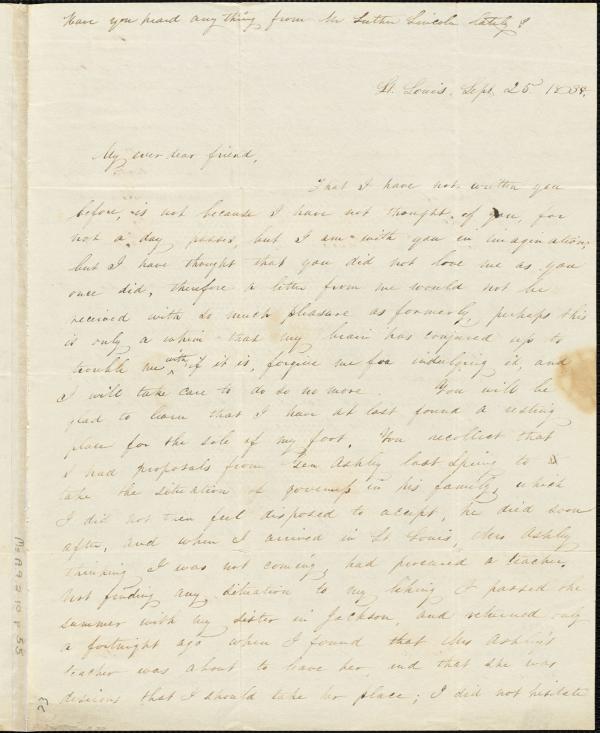 Have you heard any thing from Mr Luther Lincoln lately?
St. Louis, Sept. 25. 1838.
My ever dear friend,
That I have not written you
before, is not because I have not thought of you, for
not a day passes, but I am with you in imagination;
but I have thought that you did not love me as you
once did, therefore a letter from me would not be
received with so much pleasure as formerly, perhaps this
is only a whim that my brain has conjured up to
trouble me with if it is, forgive me for indulging it, and
I will take care to do so no more. You will be
glad to learn that I have at last found a resting
place for the sole of my foot. You recollect that
I had proposals from Gen Ashley last Spring to
take the situation of governess in his family, which
I did not then feel disposed to accept, he died soon
after, and when I arrived in St Louis, Mrs Ashley
thinking I was not coming, had procured a teacher.
Not finding any situation to my liking I passed the
summer with my sister in Jackson, and returned only
a fortnight ago when I found that Mrs Ashley's
teacher was about to leave her, and that she was
desirous that I should take her place; I did not hesitate
Ms.A.9.2.10.p.53